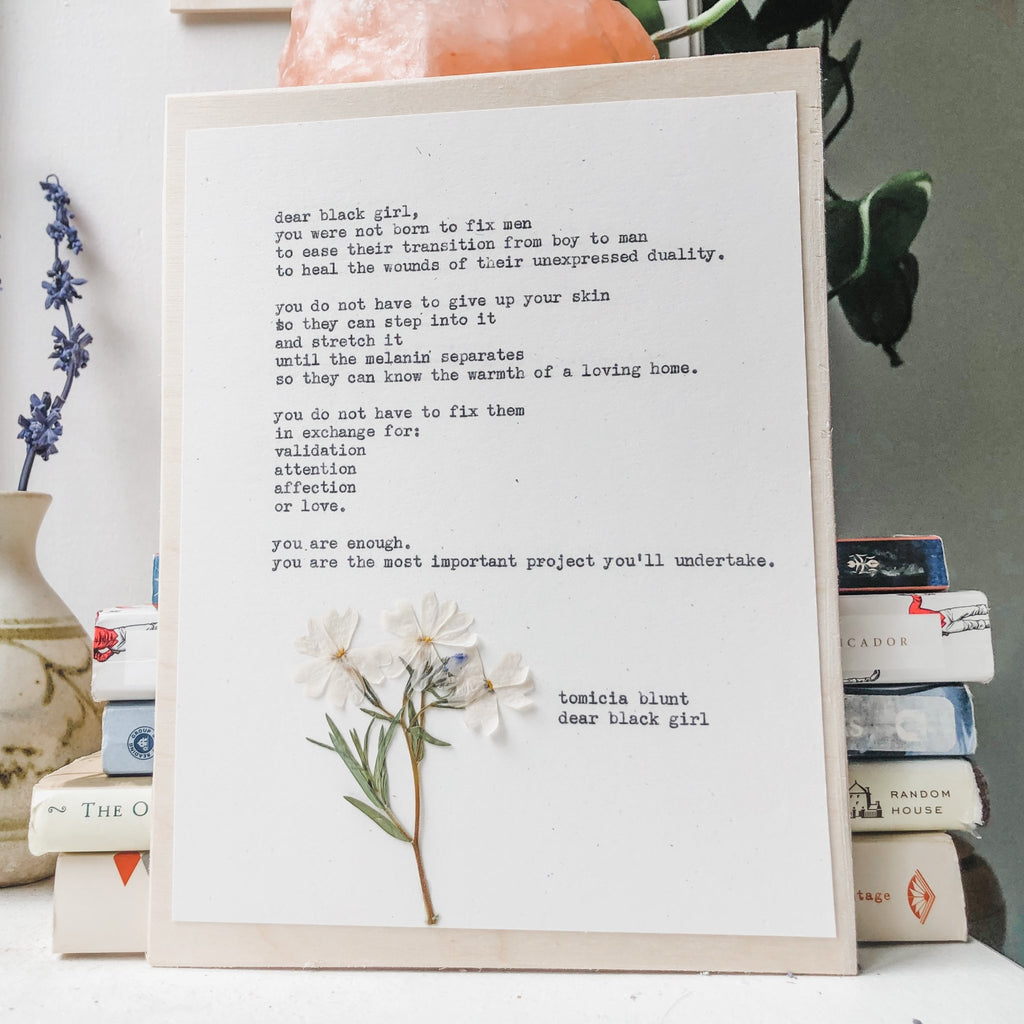 dear black girl,
you were not born to fix men
to ease their transition from boy to man
to heal the wounds of their unexpressed duality.
you do not have to give up your skin
so they can step into it
and stretch it
until the melanin separates
so they can know the warmth of a loving home.
you do not have to fix them
in exchange for:
validation
attention
affection
or love.
you are enough.
you are the most important project you'll undertake.
tomicia blunt
dear black girl
READING GROUP
THE O
ICADOR
RANDOM
HOUSE
tage